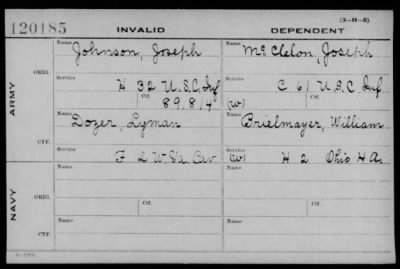 (3-H-3)
120185 INVALID DEPENDENT
ARMY
ORIG.
Name Johnson, Joseph
Service H 32 U.S.C. Inf
Ctf. 89.814
Name McClelon, Joseph
Service C 61 U.S.C Inf
(W) Ctf.
CTF.
Name Dozer, Lyman
Service F 2 W.Va. Cav
Name Brielmayer, William
Service (W) H 2 Ohio H A.
NAVY
ORIG.
Name
Service
Ctf.
Name
Service
Ctf.
CTF.
Name
Name